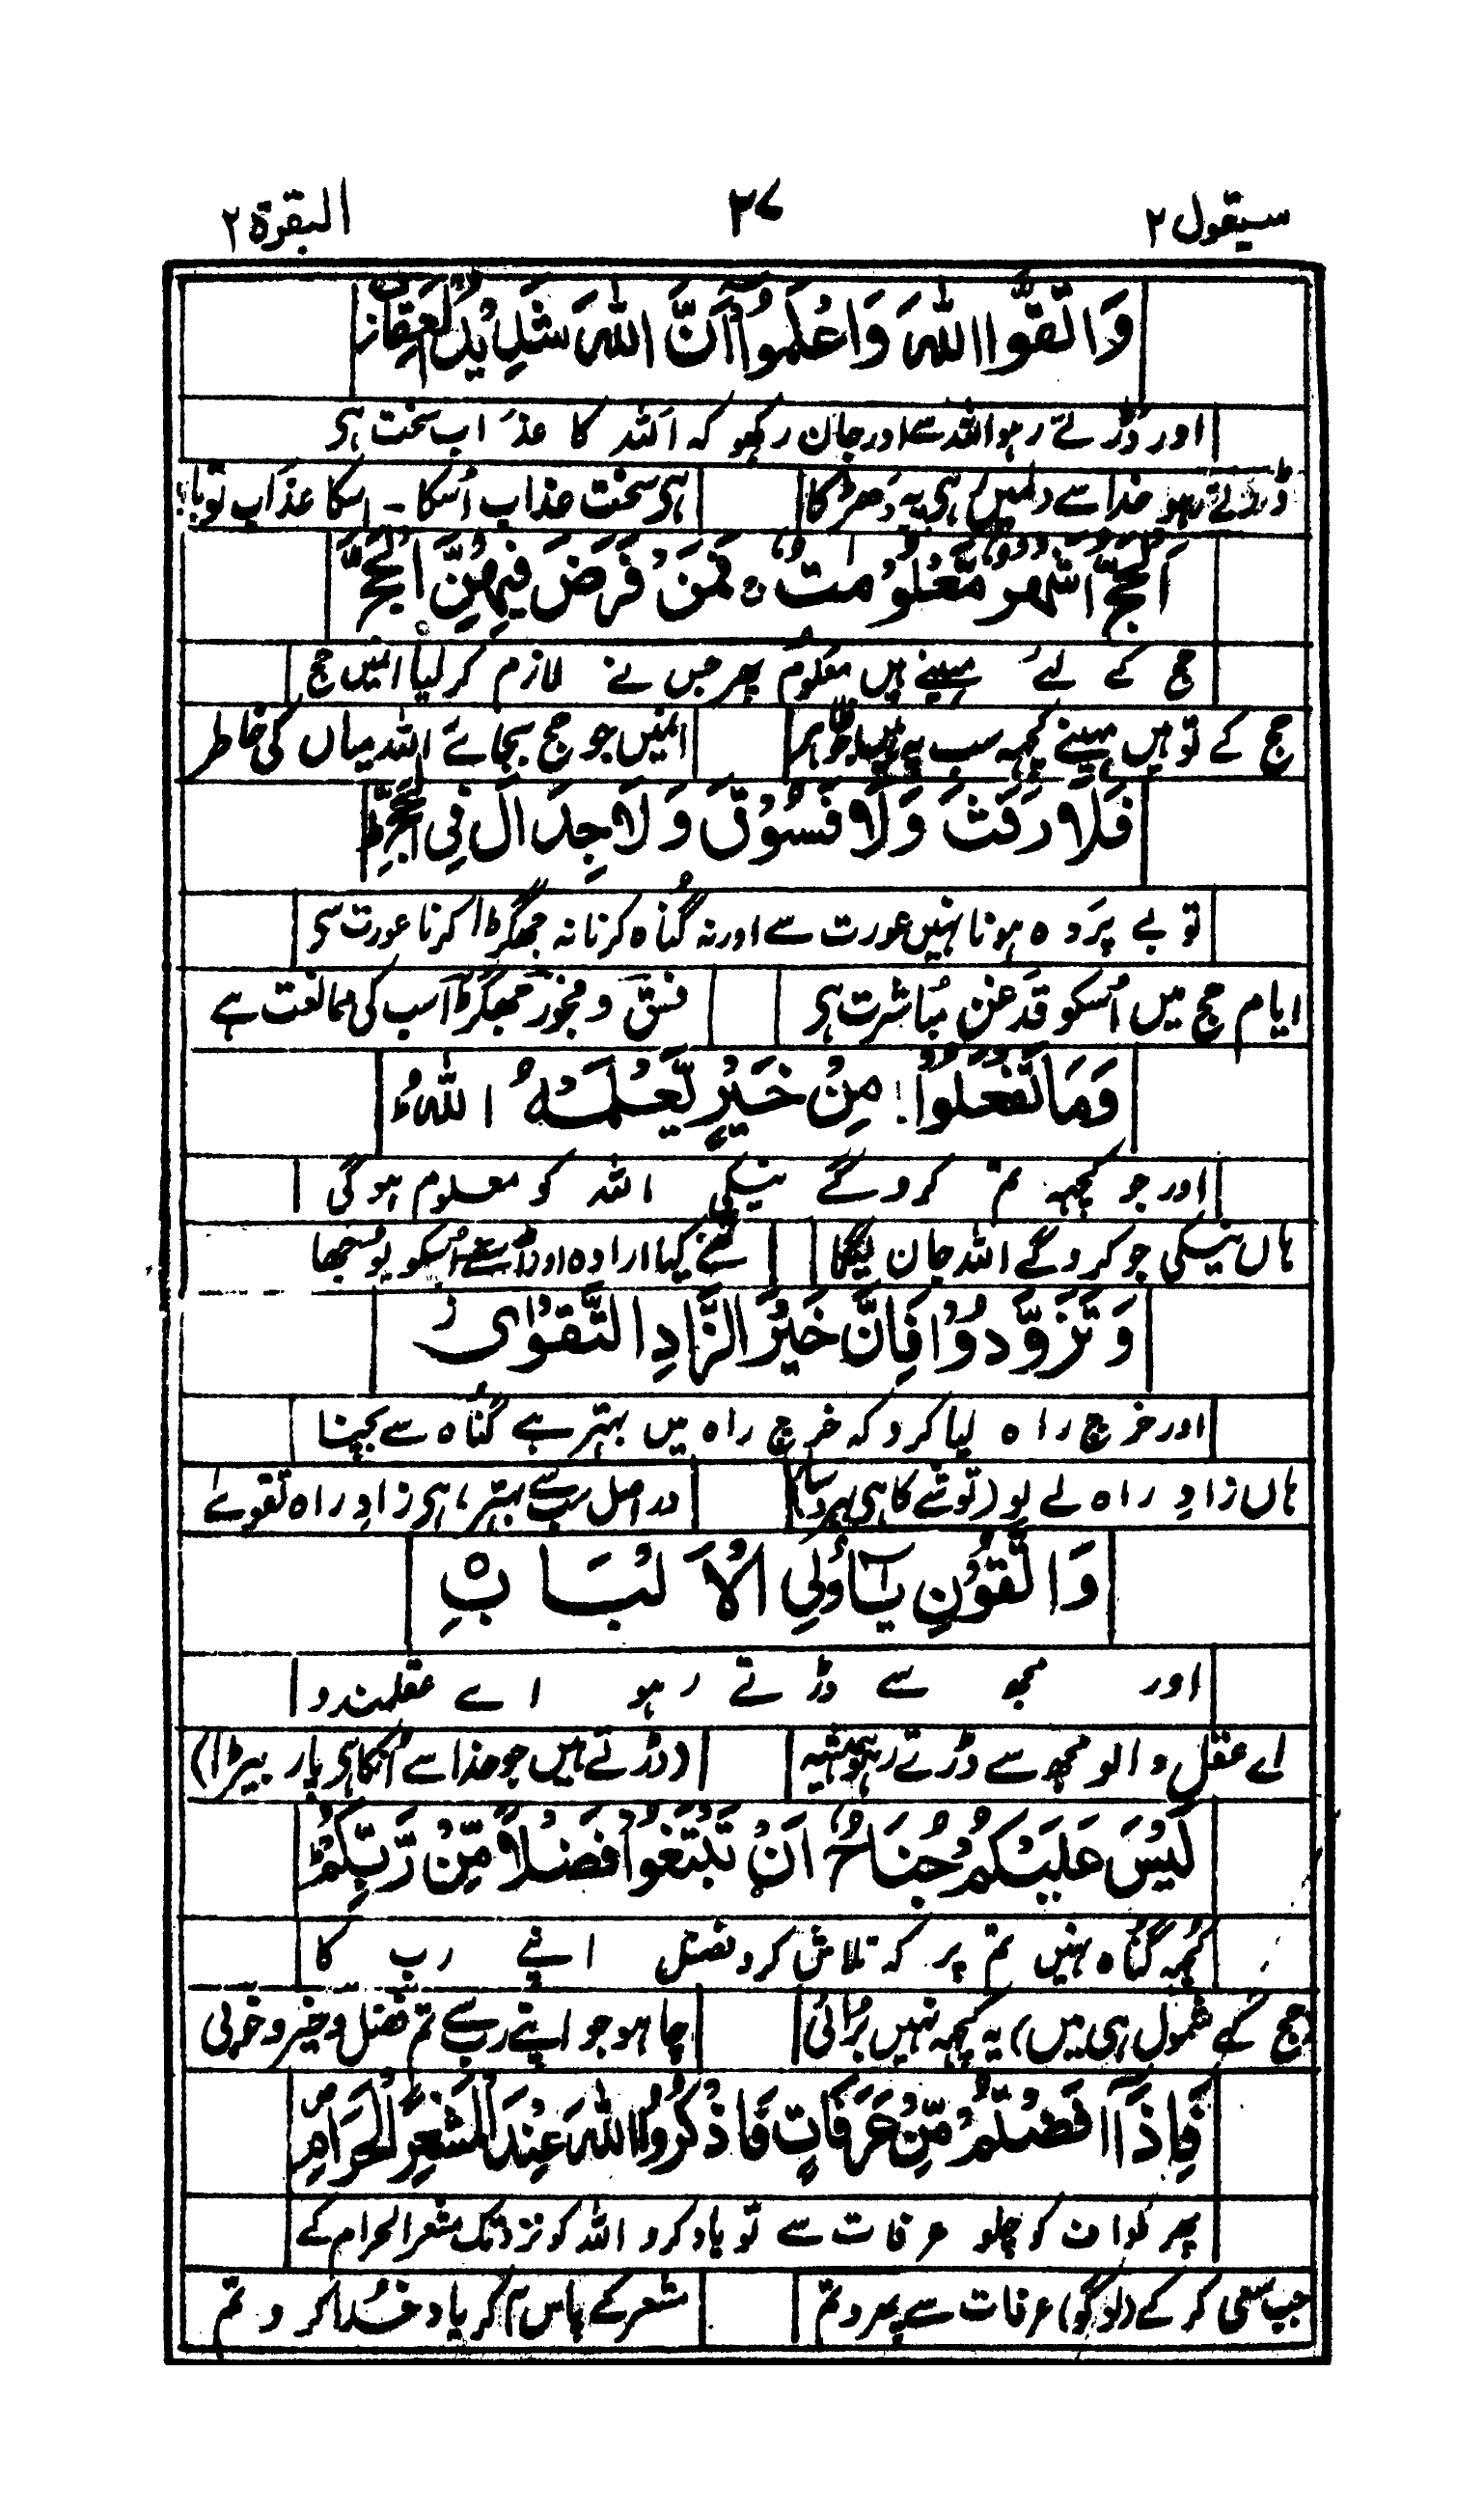 سیقول ۲ ۳۷ البقرۃ ۲
وَاتَّقُوا اللّٰهَ وَاعْلَمُوْٓا اَنَّ اللّٰهَ شَدِيْدُ الْعِقَابِ
اور ڈرتے رہو اللہ سے اور جان رکھو کہ اللہ کا عذاب سخت ہی
ڈرتے رہو خدا سے دلمیں ہی یہ دھڑکا ہی سخت عذاب اُسکا ۔ اسکا عذاب توبا!
اَلْحَجُّ اَشْهُرٌ مَّعْلُوْمٰتٌ ۚ فَمَنْ فَرَضَ فِيْهِنَّ الْحَجَّ
حج کے لئے مہینے ہیں معلوم پھر جس نے لازم کر لیا انمیں حج
حج کے تو ہیں مہینے کچھہ سب پہ ہیں جو ظاہر انمیں جو حج بجائے اللہ میاں کی خاطر
فَلَا رَفَثَ وَلَا فُسُوْقَ وَلَا جِدَالَ فِي الْحَجِّ ط
تو بے پردہ ہونا نہیں عورت سے اور نہ گناہ کرنا نہ جھگڑا کرنا عورت سی
ایام حج میں اُسکو قدغن مباشرت ہی فسق و فجور جھگڑا سب کی ممانعت ہے
وَمَا تَفْعَلُوْا مِنْ خَيْرٍ يَّعْلَمْهُ اللّٰهُ ؕ
اور جو کچھہ تم کروگے نیکی اللہ کو معلوم ہوگی
ہاں نیکی جو کروگے اللہ جان لیگا تمنے کیا ارادہ اور اُسنے اُسکو بوجھا
وَتَزَوَّدُوْا فَاِنَّ خَيْرَ الزَّادِ التَّقْوٰى
اور خرچ راہ لیا کرو کہ خرچ راہ میں بہتر ہے گناہ سے بچنا
ہاں زادِ راہ لے لو (توشے کا ہی دراصل سب سے بہتر ہی زادِ راہ تقوےٰ
وَاتَّقُوْنِ يٰٓاُولِي الْاَلْبَابِ ○
اور مجھ سے ڈرتے رہو اے عقلمندو
اے عقل والو مجھ سے ڈرتے رہو ہمیشہ (ڈرتے ہیں جو خدا سے اُنکا ہی پار بیڑا)
لَيْسَ عَلَيْكُمْ جُنَاحٌ اَنْ تَبْتَغُوْا فَضْلًا مِّنْ رَّبِّكُمْ ط
کچھہ گناہ نہیں تم پر کہ تلاش کرو فضل اپنے رب کا
(حج کے شمول ہی میں) یہ کچھہ نہیں بُرائی چاہو جو اپنے رب سے تم فضل و خیر و خوبی
فَاِذَآ اَفَضْتُمْ مِّنْ عَرَفَاتٍ فَاذْكُرُوا اللّٰهَ عِنْدَ الْمَشْعَرِ الْحَرَامِ ص
پھر طواف کو چلو عرفات سے تو یاد کرو اللہ کو نزدیک مشعر الحرام کے
جب سعی کر کے (لوگو) عرفات سے پھرو تم مشعر کے پاس آ کر یاد خدا کرو تم